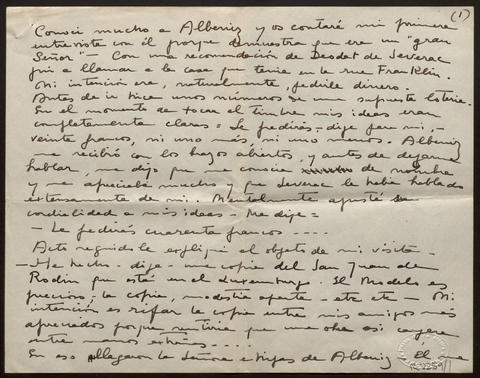 (1)
"Conocí mucho a Albeniz y os contaré mi primera
entrevista con él porque demuestra que era un "gran
Señor" — Con una recomendación de Deodat de Severac
fui a llamar a la casa que tenia en la rue Franklin.
Mi intención era, naturalmente, pedirle dinero.
Antes de ir hice unos números de una supuesta loteria.
En el momento de tocar el timbre mis ideas eran
completamente claras = Le pedirás — dije para mi, —
veinte francos, ni uno más, ni uno menos. Albeniz
me recibió con los brazos abiertos, y antes de dejarme
hablar, me dijo que me conocia de nombre
y me apreciaba mucho y que Severac le habia hablado
extensamente de mi. Mentalmente ajusté su
cordialidad a mis ideas — Me dije =
— Le pedirás cuarenta francos - - - -
Acto seguido le expliqué el objeto de mi visita —
— He hecho — dije — una copia del San Juan de
Rodin que está en el Luxemburgo. El modelo es
precioso, la copia, modestia aparte — etc etc — Mi
intención es rifar la copia entre mis amigos más
apreciados porque sentiria que una obra asi cayera
entre manos extrañas - - - -
En eso llegaron la Señora e hijas de Albeniz. El me